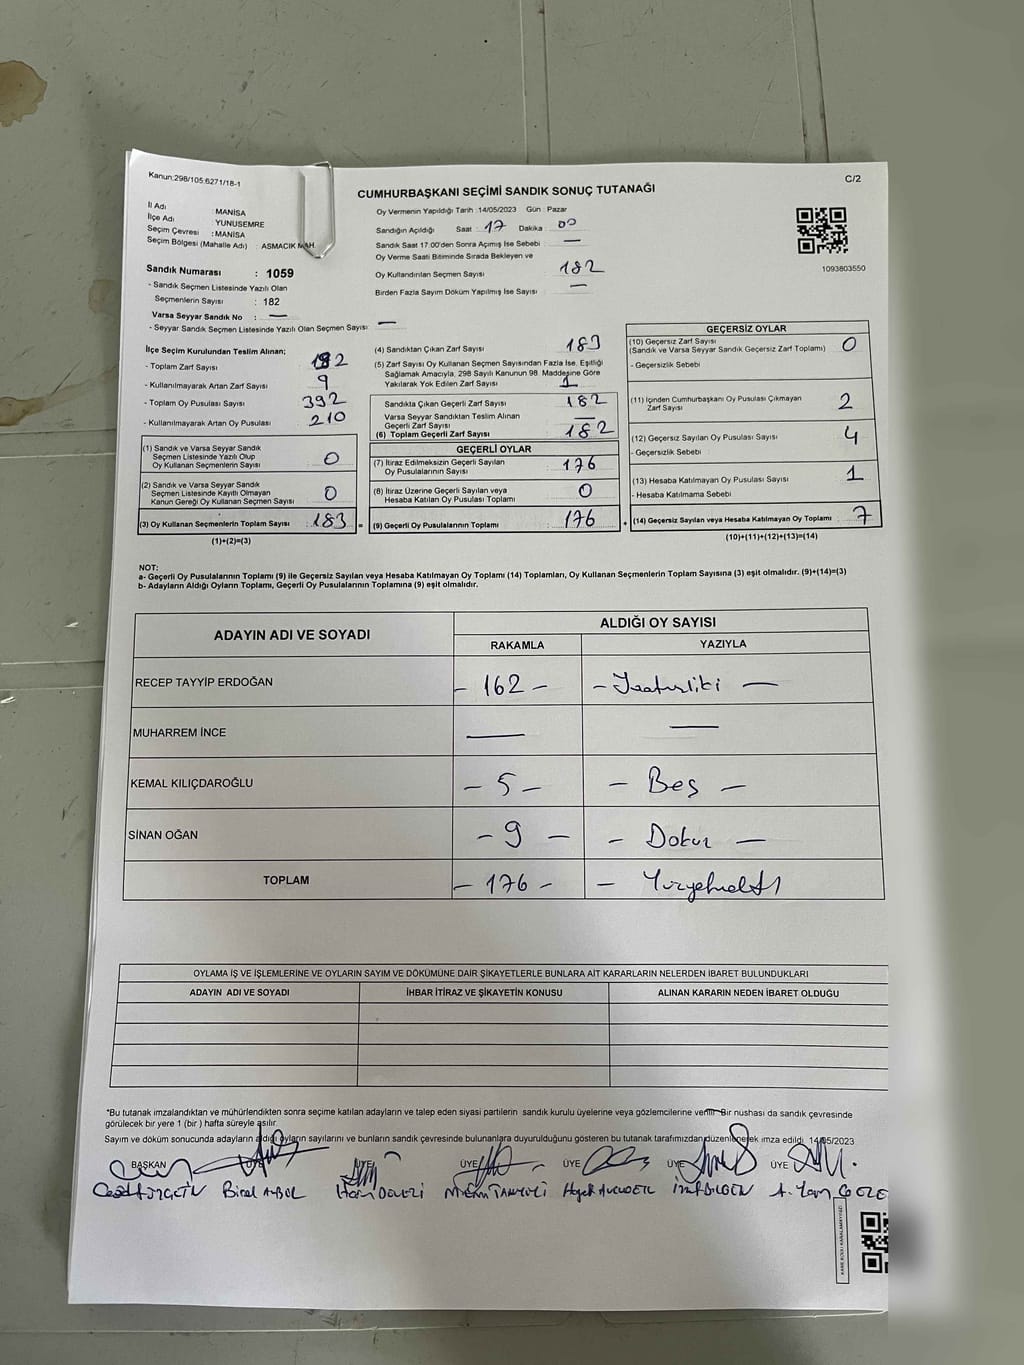 Kanun:298/105:6271/18-1
C/2
CUMHURBAŞKANI SEÇİMİ SANDIK SONUÇ TUTANAĞI
İl Adı : MANİSA
İlçe Adı : YUNUSEMRE
Seçim Çevresi : MANİSA
Seçim Bölgesi (Mahalle Adı) : ASMACIK MAH.
Sandık Numarası : 1059
- Sandık Seçmen Listesinde Yazılı Olan
Seçmenlerin Sayısı : 182
Varsa Seyyar Sandık No : —
- Seyyar Sandık Seçmen Listesinde Yazılı Olan Seçmen Sayısı : —
Oy Vermenin Yapıldığı Tarih :14/05/2023 Gün : Pazar
Sandığın Açıldığı Saat : 17 Dakika : 00
Sandık Saat 17:00'den Sonra Açımış İse Sebebi : —
Oy Verme Saati Bitiminde Sırada Bekleyen ve
Oy Kullandırılan Seçmen Sayısı : 182
Birden Fazla Sayım Döküm Yapılmış İse Sayısı : —
1093803550
İlçe Seçim Kurulundan Teslim Alınan;
- Toplam Zarf Sayısı : 192
- Kullanılmayarak Artan Zarf Sayısı : 9
- Toplam Oy Pusulası Sayısı : 392
- Kullanılmayarak Artan Oy Pusulası : 210
(1) Sandık ve Varsa Seyyar Sandık
Seçmen Listesinde Yazılı Olup
Oy Kullanan Seçmenlerin Sayısı : 0
(2) Sandık ve Varsa Seyyar Sandık
Seçmen Listesinde Kayıtlı Olmayan
Kanun Gereği Oy Kullanan Seçmen Sayısı : 0
(3) Oy Kullanan Seçmenlerin Toplam Sayısı : 183
(1)+(2)=(3)
(4) Sandıktan Çıkan Zarf Sayısı : 183
(5) Zarf Sayısı Oy Kullanan Seçmen Sayısından Fazla İse, Eşitliği
Sağlamak Amacıyla, 298 Sayılı Kanunun 98. Maddesine Göre
Yakılarak Yok Edilen Zarf Sayısı : 1
Sandıkta Çıkan Geçerli Zarf Sayısı : 182
Varsa Seyyar Sandıktan Teslim Alınan
Geçerli Zarf Sayısı : —
(6) Toplam Geçerli Zarf Sayısı : 182
GEÇERLİ OYLAR
(7) İtiraz Edilmeksizin Geçerli Sayılan
Oy Pusulalarının Sayısı : 176
(8) İtiraz Üzerine Geçerli Sayılan veya
Hesaba Katılan Oy Pusulası Toplamı : 0
= (9) Geçerli Oy Pusulalarının Toplamı : 176
GEÇERSİZ OYLAR
(10) Geçersiz Zarf Sayısı : 0
(Sandık ve Varsa Seyyar Sandık Geçersiz Zarf Toplamı)
- Geçersizlik Sebebi
(11) İçinden Cumhurbaşkanı Oy Pusulası Çıkmayan
Zarf Sayısı : 2
(12) Geçersiz Sayılan Oy Pusulası Sayısı : 4
- Geçersizlik Sebebi
(13) Hesaba Katılmayan Oy Pusulası Sayısı : 1
- Hesaba Katılmama Sebebi
+ (14) Geçersiz Sayılan veya Hesaba Katılmayan Oy Toplamı : 7
(10)+(11)+(12)+(13)=(14)
NOT:
a- Geçerli Oy Pusulalarının Toplamı (9) ile Geçersiz Sayılan veya Hesaba Katılmayan Oy Toplamı (14) Toplamları, Oy Kullanan Seçmenlerin Toplam Sayısına (3) eşit olmalıdır. (9)+(14)=(3)
b- Adayların Aldığı Oyların Toplamı, Geçerli Oy Pusulalarının Toplamına (9) eşit olmalıdır.
ADAYIN ADI VE SOYADI ALDIĞI OY SAYISI
RAKAMLA YAZIYLA
RECEP TAYYİP ERDOĞAN – 162 –
MUHARREM İNCE — —
KEMAL KILIÇDAROĞLU – 5 – – Beş –
SİNAN OĞAN – 9 – – Dokuz –
TOPLAM – 176 –
OYLAMA İŞ VE İŞLEMLERİNE VE OYLARIN SAYIM VE DÖKÜMÜNE DAİR ŞİKAYETLERLE BUNLARA AİT KARARLARIN NELERDEN İBARET BULUNDUKLARI
ADAYIN ADI VE SOYADI İHBAR İTİRAZ VE ŞİKAYETİN KONUSU ALINAN KARARIN NEDEN İBARET OLDUĞU
*Bu tutanak imzalandıktan ve mühürlendikten sonra seçime katılan adayların ve talep eden siyasi partilerin sandık kurulu üyelerine veya gözlemcilerine verilir. Bir nüshası da sandık çevresinde
görülecek bir yere 1 (bir ) hafta süreyle asılır.
Sayım ve döküm sonucunda adayların aldığı oyların sayılarını ve bunların sandık çevresinde bulunanlara duyurulduğunu gösteren bu tutanak tarafımızdan düzenlenerek imza edildi. 14/05/2023
BAŞKAN ÜYE ÜYE ÜYE ÜYE ÜYE ÜYE